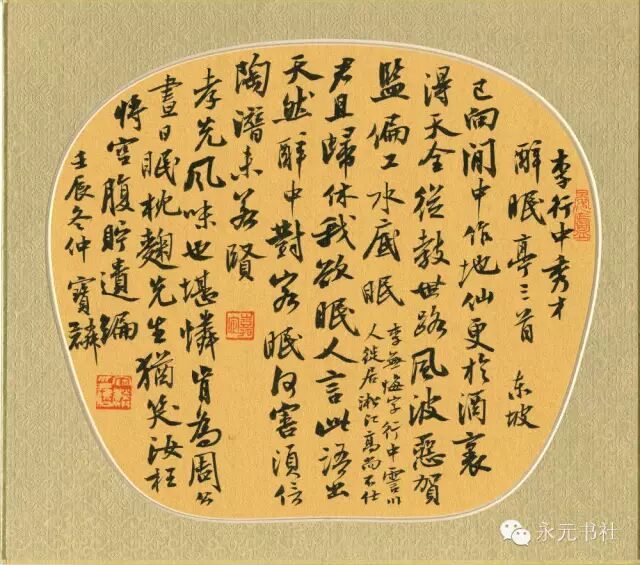 李行中秀才
醉眠亭三首 东坡
已向閒中作地仙更於酒裏
得天全從教世路風波惡賀
監偏工水底眠
李無悔字行中霅川
人徙居淞江高尚不仕
君且歸休我欲眠人言此語出
天然醉中對客眠何害須信
陶潛未若賢
孝先風味也堪憐肯為周公
晝日眠枕麴先生猶笑汝枉
將空腹貯遺編
壬辰冬仲 寶麟
永元书社